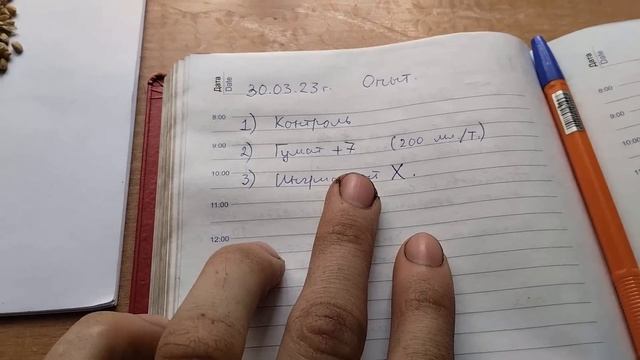 Дата
Date
30.03.23г. Опыт.
8:00
1) Контроль
9:00
2) Гумат +7 (200 мл/т.)
10:00
3) X.
11:00
12:00
Дата
Date
8:00
9:00
10:00